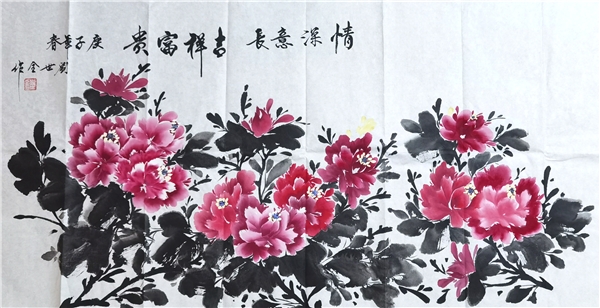 情深意長 吉祥富贵 庚子春
刘世全作